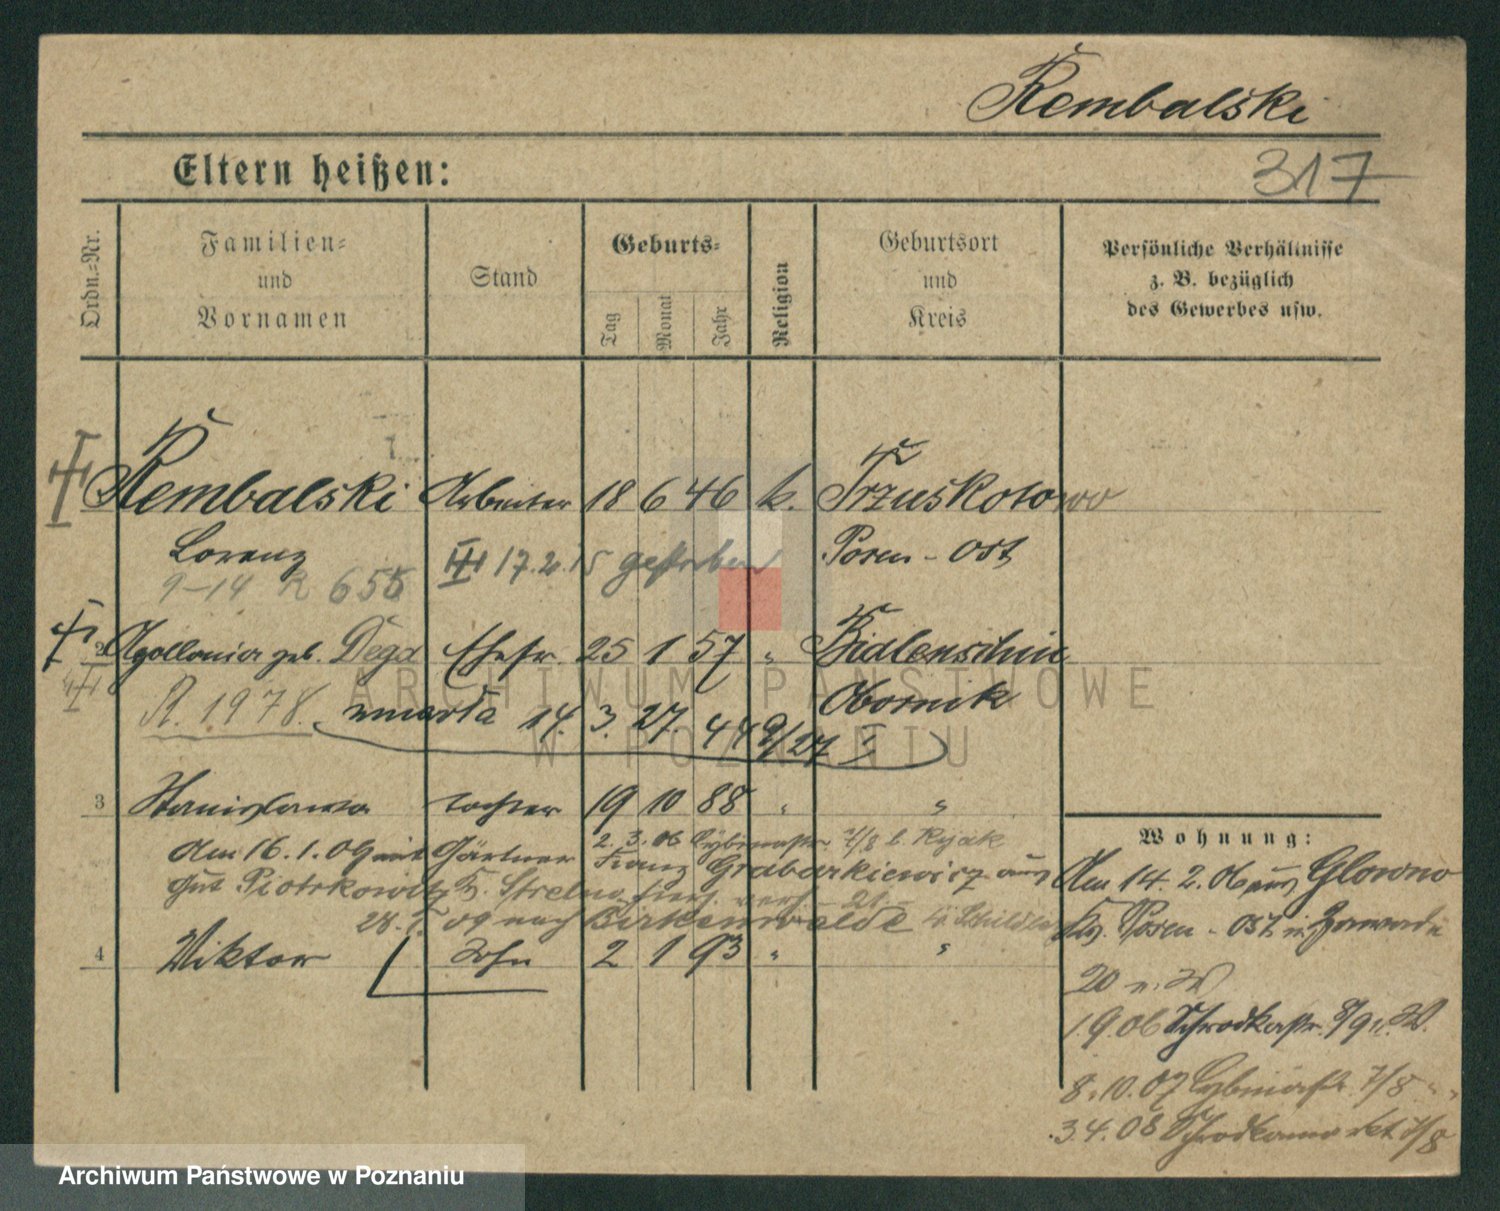 Rembalski
Eltern heißen:
317
Ordn.=Nr.
Familien=
und
Vornamen
Stand
Geburts=
Tag
Monat
Jahr
Religion
Geburtsort
und
Kreis
Persönliche Verhältnisse
z. B. bezüglich
des Gewerbes usw.
Rembalski Arbeiter 18 6 46 k. Trzuskotowo
Lorenz 17.2.15 gestorben Posen - Ost
9-14 R 655
2 Apollonia geb. Dega Ehefr. 25 1 57 " Bidlenschin
R. 1978. zmarła 14. 3. 27. 449/27 Obornik
3 Stanislawa Tochter 19 10 88 " "
2.3.06 Cybinastr. 7/8 b. Rzjak
Am 16.1.09 mit Gärtner Franz Grabarkiewicz aus
Gut Piotrkowitz Kr. Strelno
09 nach Birkenwalde
4 Viktor Sohn 2 1 93 " "
Wohnung:
Am 14.2.06 aus Glowno
Kr. Posen - Ost in
20 n. W
1.9.06 Schrodkastr. 8/9 n. W.
8.10.07 Cybinastr. 7/8 " "
3.4.08 Schrodkamarkt 7/8
ARCHIWUM PAŃSTWOWE
W POZNANIU
Archiwum Państwowe w Poznaniu